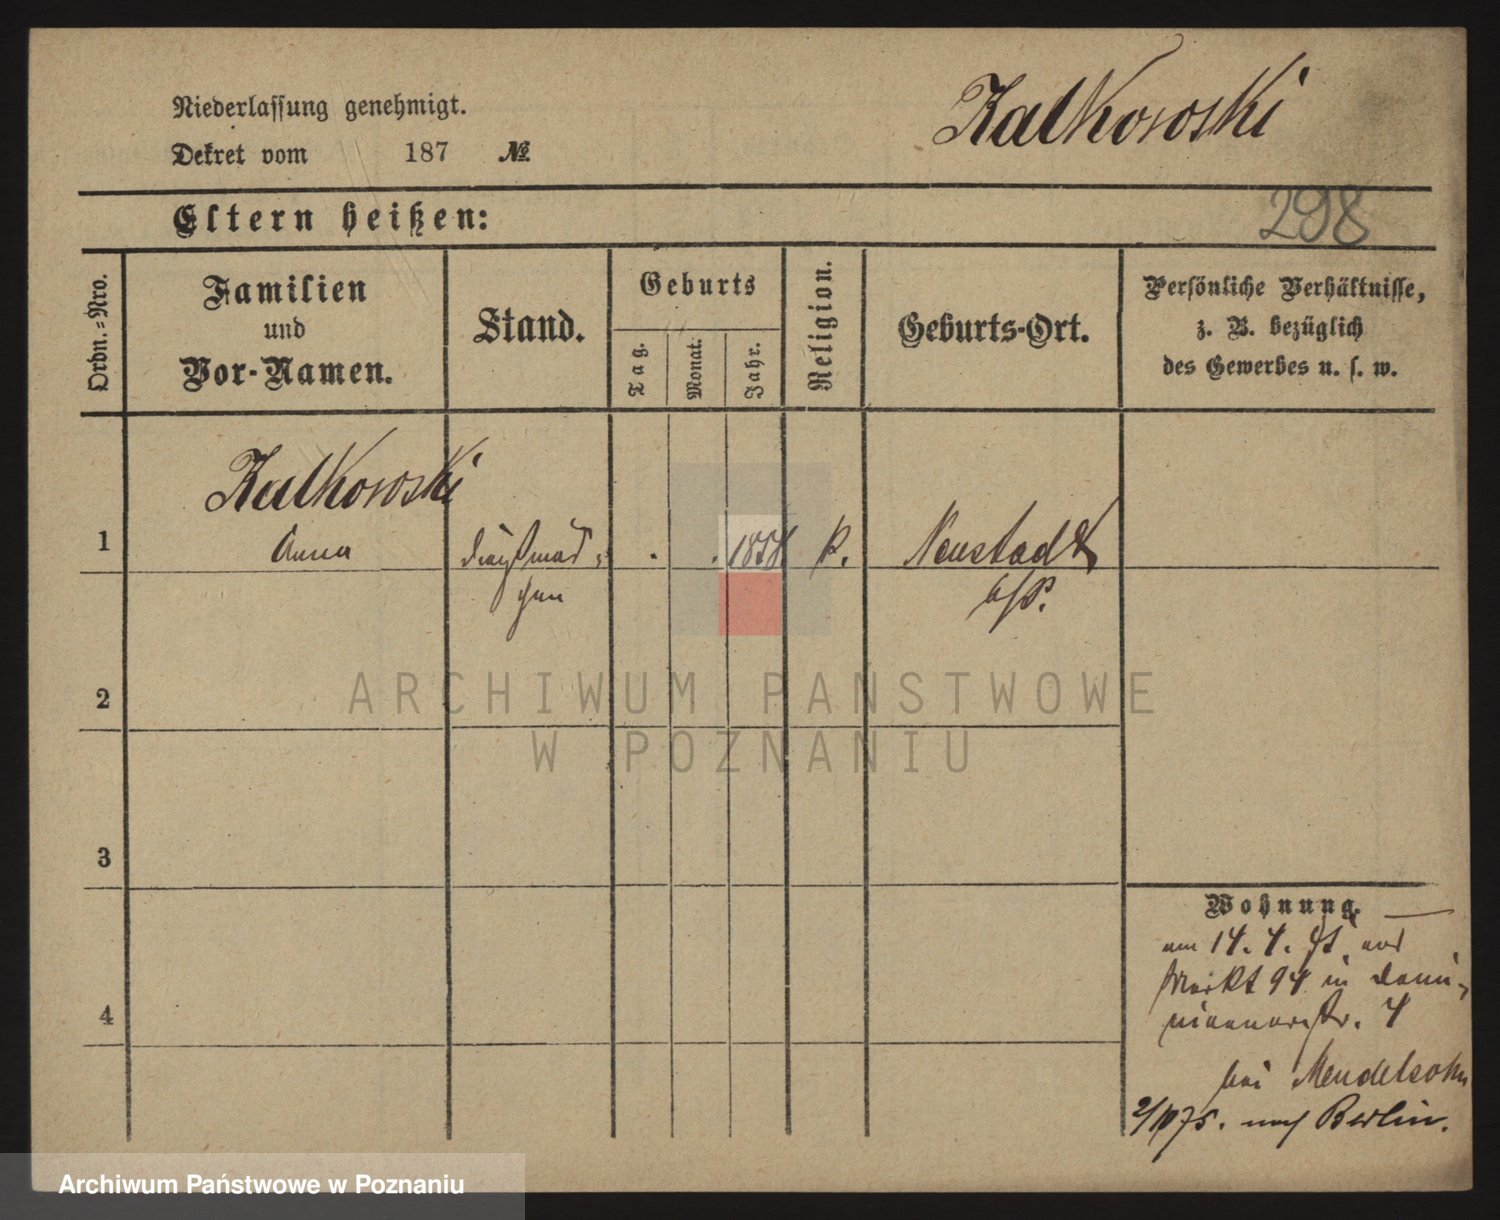 Niederlassung genehmigt.
Dekret vom 187 №
Kalkowski
298
Eltern heißen:
Ordn.=Nro.
Familien
und
Vor-Namen.
Stand.
Geburts
Tag.
Monat.
Jahr.
Religion.
Geburts-Ort.
Persönliche Verhältnisse,
z. B. bezüglich
des Gewerbes u. s. w.
Kalkowski
1 Anna Dienstmäd= . . 1858 k. Neustadt
chen b/P.
2
3
4
Wohnung.
am 14. 4. aus
Markt 94 in Domi-
nicanerstr. 4
bei Mendelsohn
2/10 75. nach Berlin.
ARCHIWUM PAŃSTWOWE
W POZNANIU
Archiwum Państwowe w Poznaniu